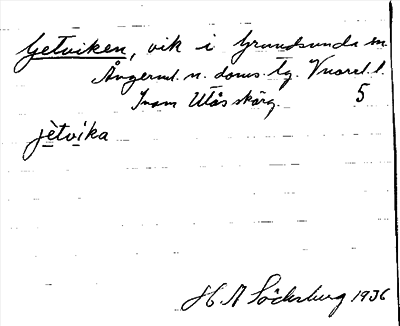 Getviken, vik i Grundsunda sn
Ångerml. n. doms. tg.
Inom Utås skärg. 5
jètvika
H A Söderberg 1936